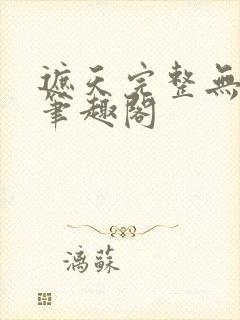 遮天完整無
筆趣閣
漓蘇